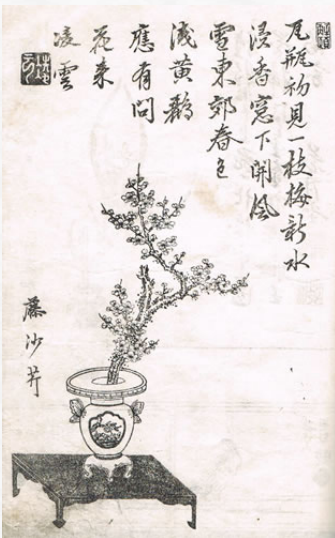 瓦瓶初見一枝梅新水
浸香窓下開風
雪東郊春色
淺黄鸝
應有問
花来
凌雲
藤沙